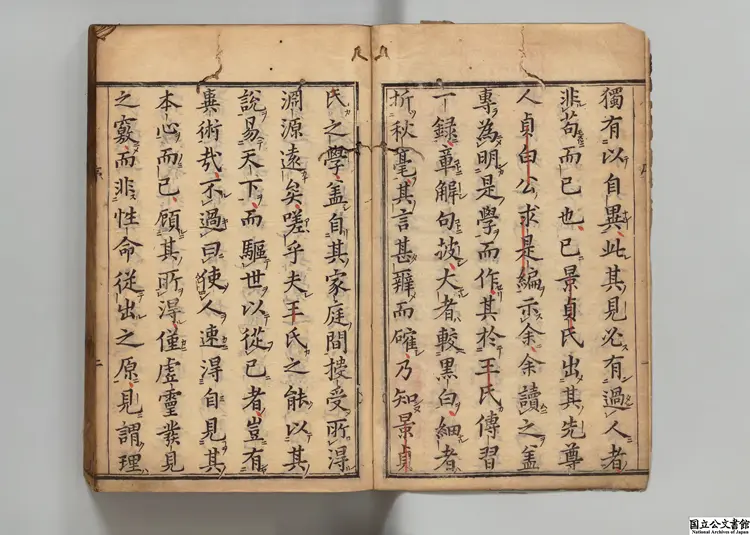 獨有以自異此其見必有過人者
非苟而已也已景貞氏出其先尊
人貞白公求是編示余余讀之盖
專為明是學而作其於王氏傳習
一錄章解句披大者較黑白細者
折秋毫其言甚辨而確乃知景貞
氏之學盖自其家庭間授受所得
淵源遠矣嗟乎夫王氏之能以其
說易天下而驅世以從己者豈有
異術哉不過曰使人速得自見其
本心而已顧其所得僅虛靈發見
之竅而非性命從出之原見謂理
序
二
国立公文書館
National Archives of Japan